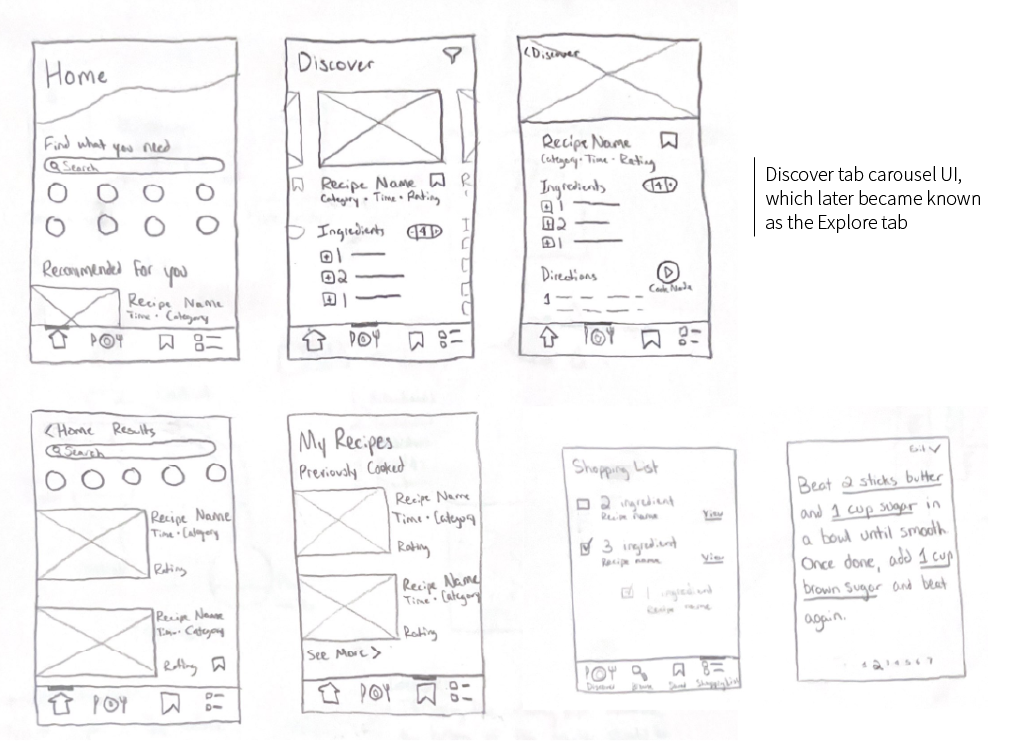 Home
Find what you need
Search
Recommended For you
Recipe Name
Time · Category
Discover
Recipe Name
Category · Time · Rating
Ingredients
4
1
2
1
R
I
<Discover
Recipe Name
Category · Time · Rating
Ingredients
4
1
2
1
Directions
Cook Mode
1
Discover tab carousel UI,
which later became known
as the Explore tab
<Home Results
Search
Recipe Name
Time · Category
Rating
Recipe Name
Time · Category
Rating
My Recipes
Previously Cooked
Recipe Name
Time · Category
Rating
Recipe Name
Time · Category
Rating
See More >
Shopping List
2 ingredient
Recipe name
View
3 ingredient
Recipe name
View
1 ingredient
Recipe name
Discover
Saved
Shopping List
Exit
Beat 2 sticks butter
and 1 cup sugar in
a bowl until smooth
Once done, add 1 cup
brown sugar and beat
again.
2 3 4 5 6 7